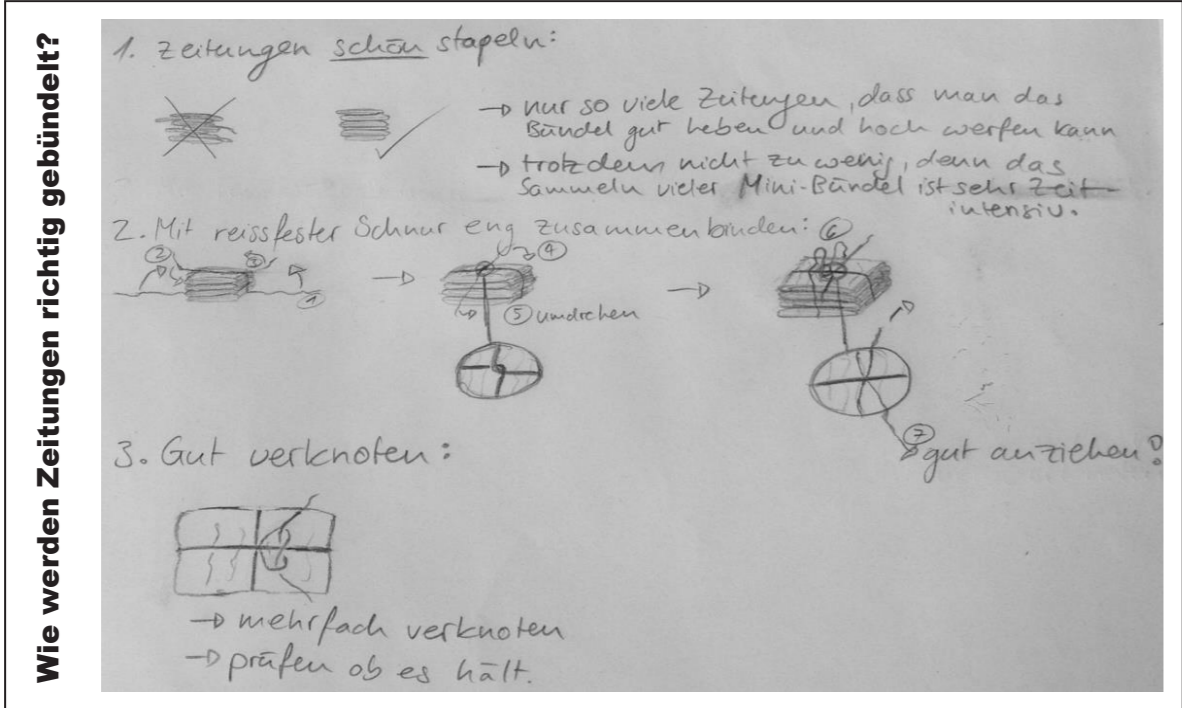 Wie werden Zeitungen richtig gebündelt?
1. Zeitungen schön stapeln:
→ nur so viele Zeitungen, dass man das
Bündel gut heben und hoch werfen kann
→ trotzdem nicht zu wenig, denn das
Sammeln vieler Mini-Bündel ist sehr Zeit-
intensiv.
2. Mit reissfester Schnur eng zusammenbinden:
② ③ ① → ④ → ⑥
⑤ umdrehen
⑦ gut anziehen!
3. Gut verknoten:
→ mehrfach verknoten
→ prüfen ob es hält.